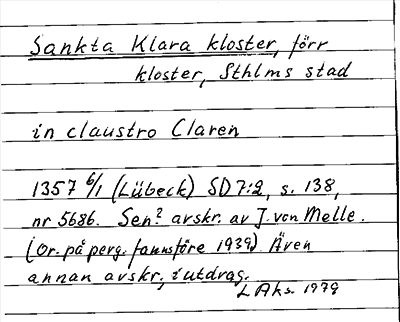 Sankta Klara kloster, förr
kloster, Sthlms stad
in claustro Claren
1357 6/1 (Lübeck) SD 7:2, s. 138,
nr 5686. Sen? avskr. av J. von Melle.
(Or. på perg. fanns före 1939). Även
annan avskr., i utdrag.
L Aks. 1979